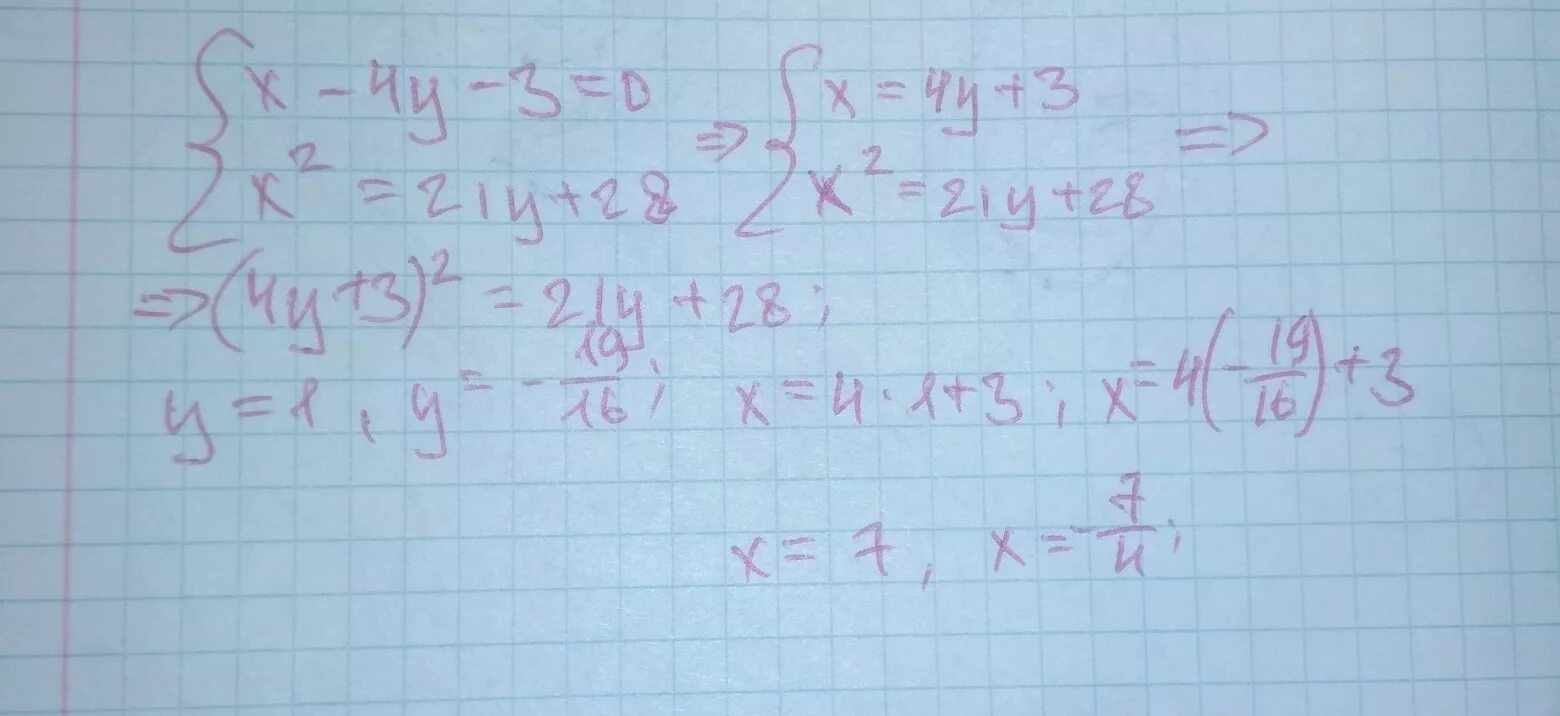 { x - 4y - 3 = 0 => { x = 4y + 3 =>
x² = 21y + 28 x² = 21y + 28
=> (4y + 3)² = 21y + 28 ;
y = 1 , y = - 19/16 ; x = 4 · 1 + 3 ; x = 4(- 19/16) + 3
x = 7 , x = - 7/4 ;